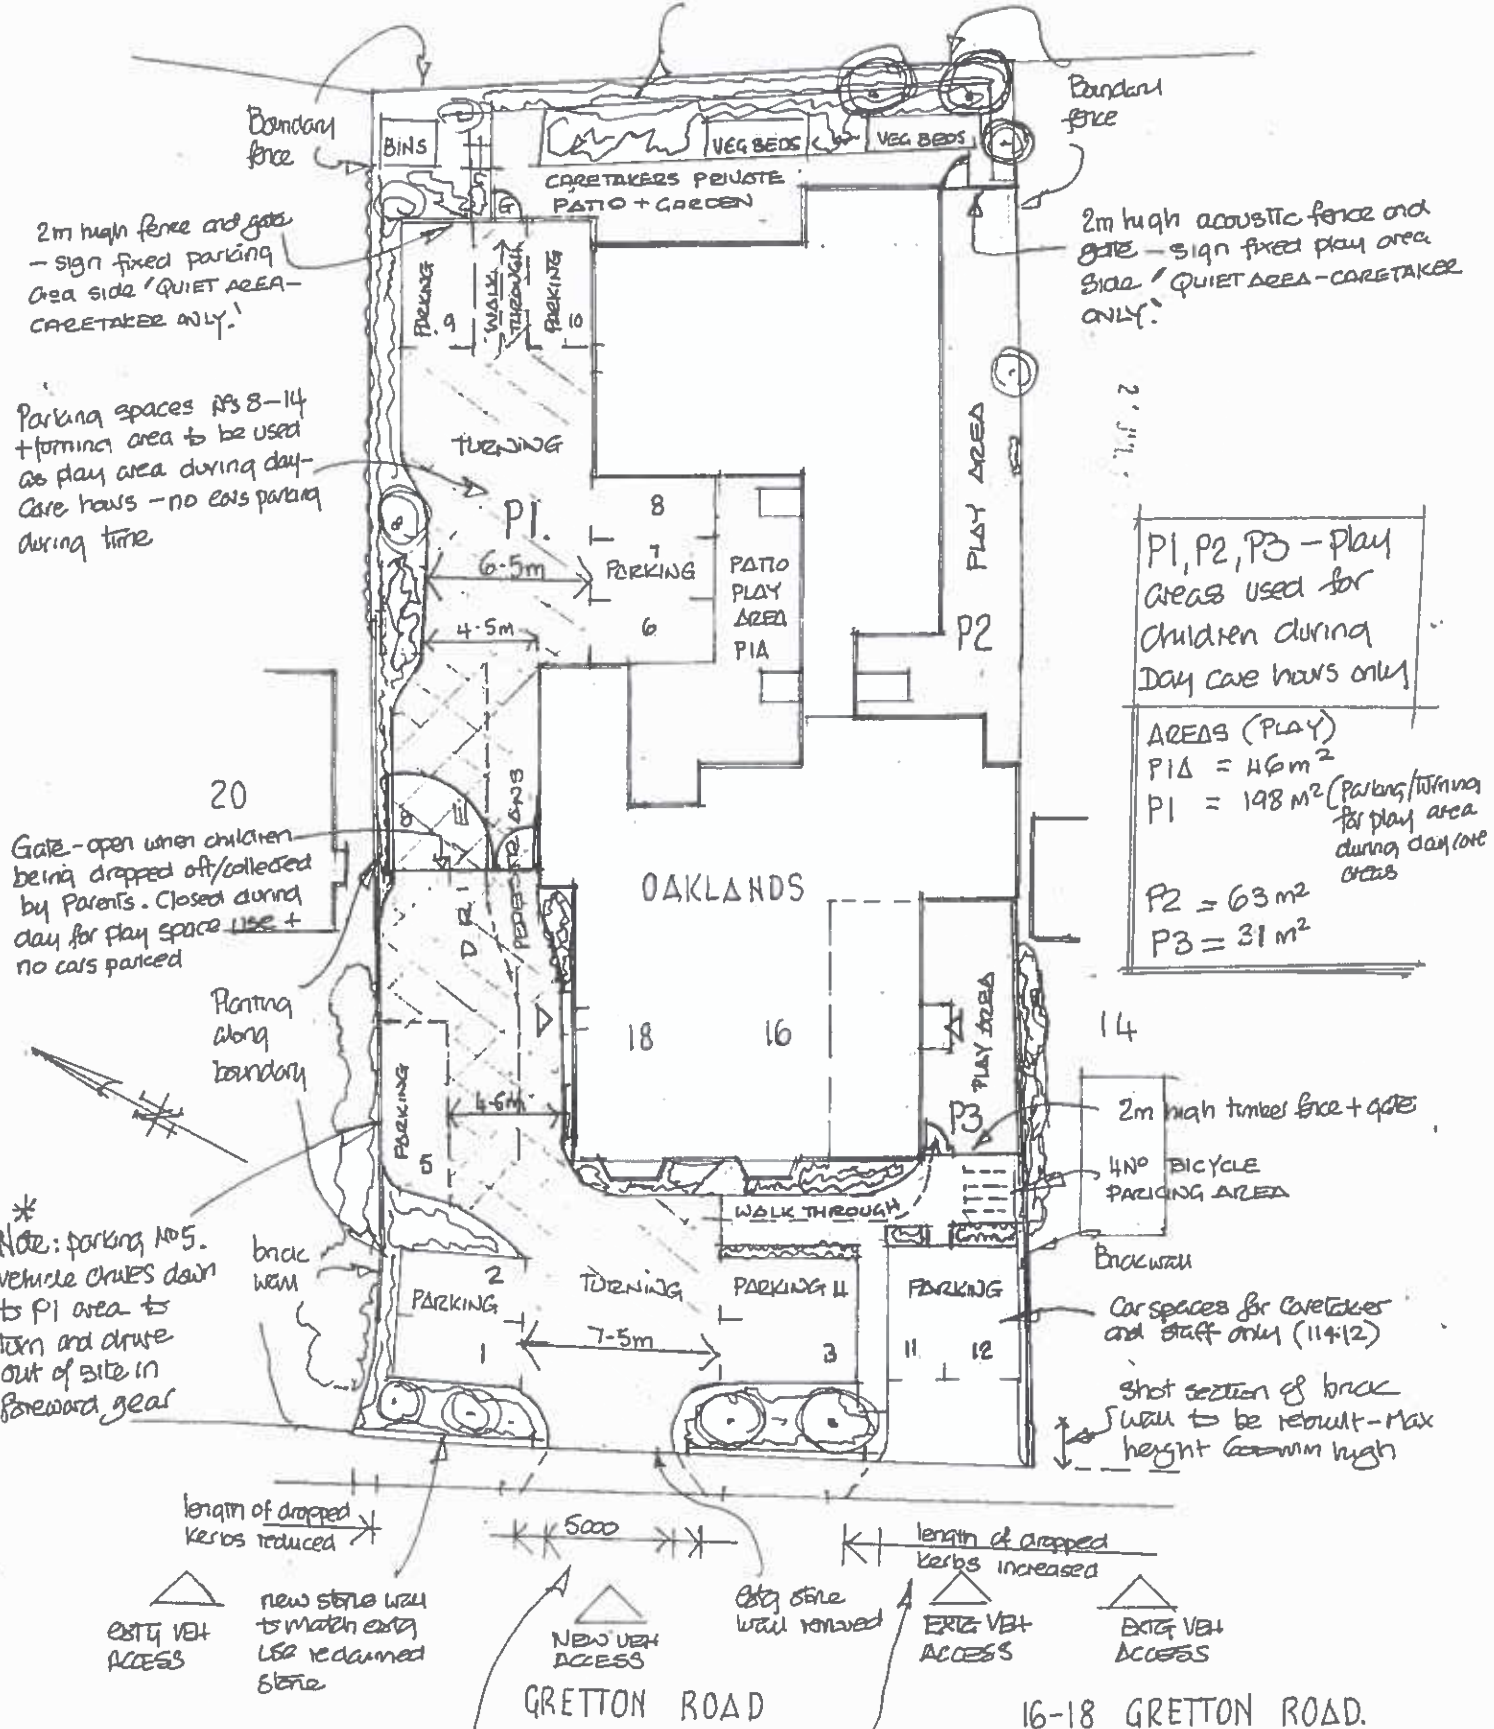 Boundary
fence
BINS
VEG BEDS
VEG BEDS
Boundary
fence
CARETAKERS PRIVATE
PATIO + GARDEN
G
2m high fence and gate
- sign fixed parking
area side 'QUIET AREA-
CARETAKER ONLY.'
2m high acoustic fence and
gate - sign fixed play area
side 'QUIET AREA-CARETAKER
ONLY.'
PARKING
9
WALK
THROUGH
PARKING
10
Parking spaces Nos 8-14
+turning area to be used
as play area during day-
care hours - no cars parking
during time
TURNING
P1.
6.5m
4.5m
8
7
PARKING
6
PATIO
PLAY
AREA
P1A
PLAY AREA
P2
P1, P2, P3 - Play
areas used for
children during
Day care hours only
AREAS (PLAY)
P1A = 46m²
P1 = 198 M² (Parking/turning
for play area
during daycare
areas
P2 = 63m²
P3 = 31m²
20
Gate - open when children
being dropped off/collected
by Parents. Closed during
day for play space use +
no cars parked
PEDESTRIANS
DRIVE
OAKLANDS
18
16
14
Planting
along
boundary
PARKING
5
4.6m
PLAY AREA
P3
2m high timber fence + gate
4No BICYCLE
PARKING AREA
WALK THROUGH
Brick wall
*
Note: parking No 5.
vehicle drives down
to P1 area to
turn and drive
out of site in
foreward gear
brick
wall
2
PARKING
1
TURNING
7.5m
PARKING 4
3
PARKING
11
12
Car spaces for caretaker
and staff only (11+12)
Shot section of brick
wall to be rebuilt - Max
height 600mm high
length of dropped
kerbs reduced
5000
length of dropped
kerbs increased
EXTG VEH
ACCESS
new stone wall
to match extg
use reclaimed
stone
NEW VEH
ACCESS
extg stone
wall removed
EXTG VEH
ACCESS
EXTG VEH
ACCESS
GRETTON ROAD
16-18 GRETTON ROAD.